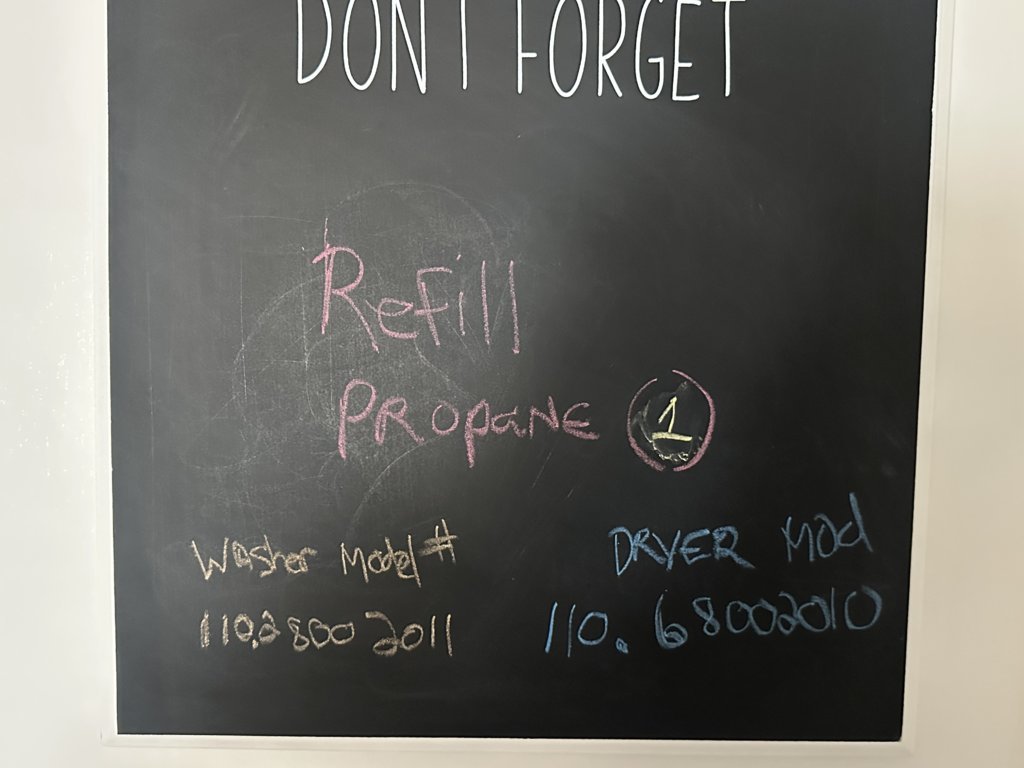 DON'T FORGET
Refill
PROPANE 1
Washer Model #
110.28002011
DRYER Mod
110.68002010